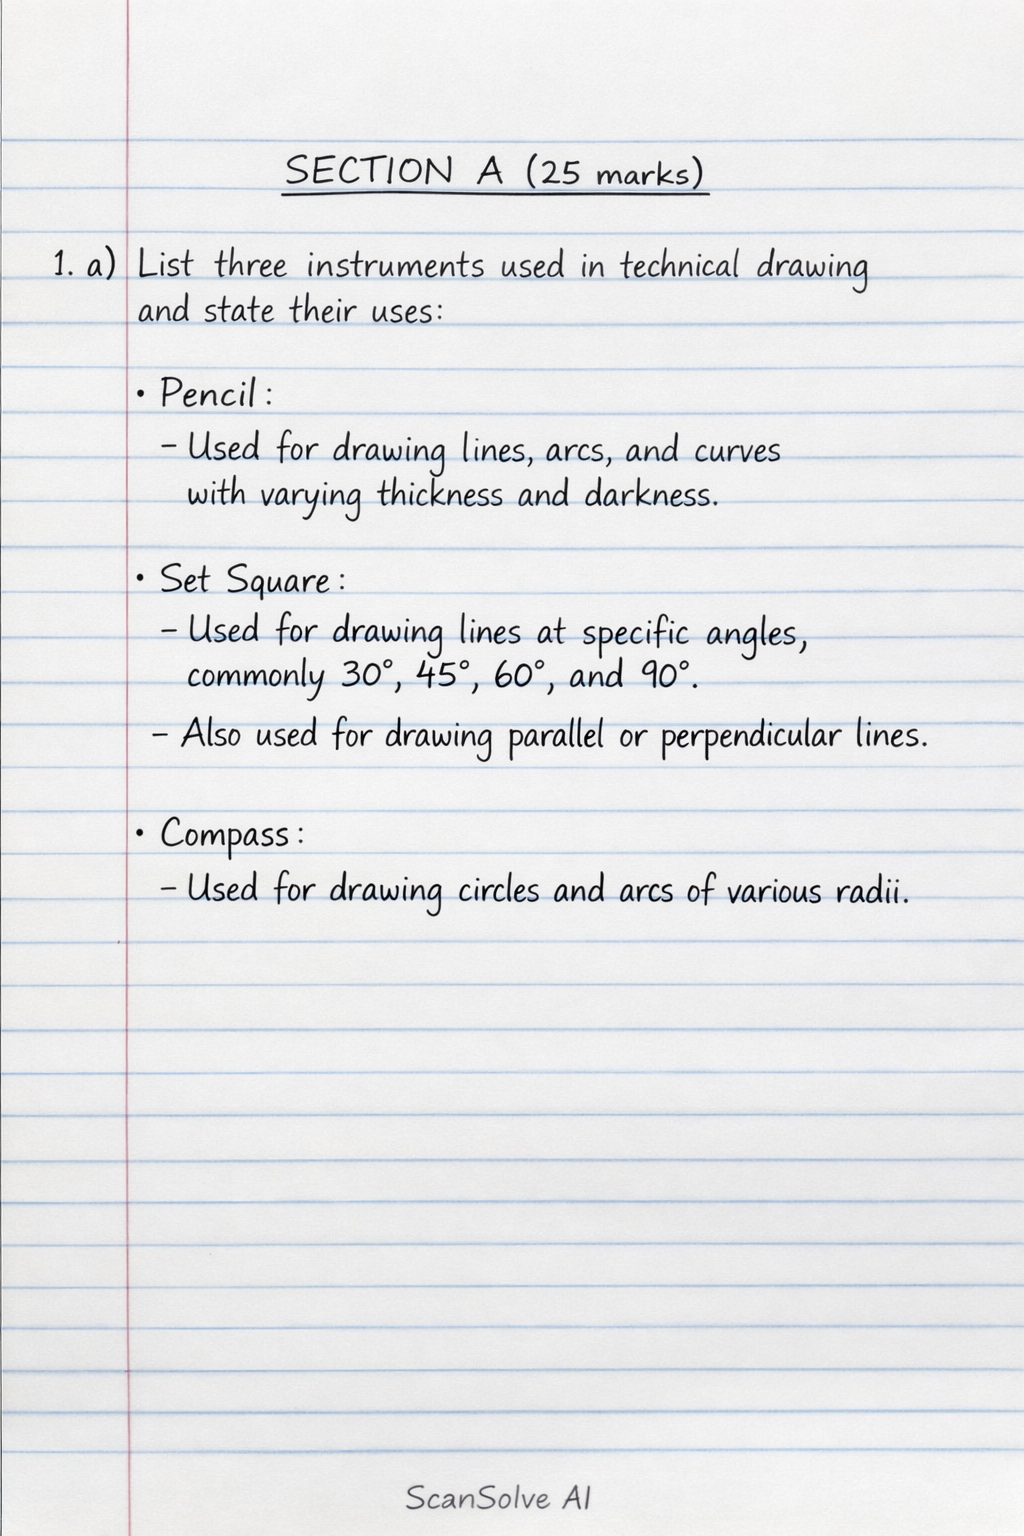 SECTION A (25 marks)
1. a) List three instruments used in technical drawing
and state their uses:
• Pencil:
– Used for drawing lines, arcs, and curves
with varying thickness and darkness.
• Set Square:
– Used for drawing lines at specific angles,
commonly 30°, 45°, 60°, and 90°.
– Also used for drawing parallel or perpendicular lines.
• Compass:
– Used for drawing circles and arcs of various radii.
ScanSolve AI